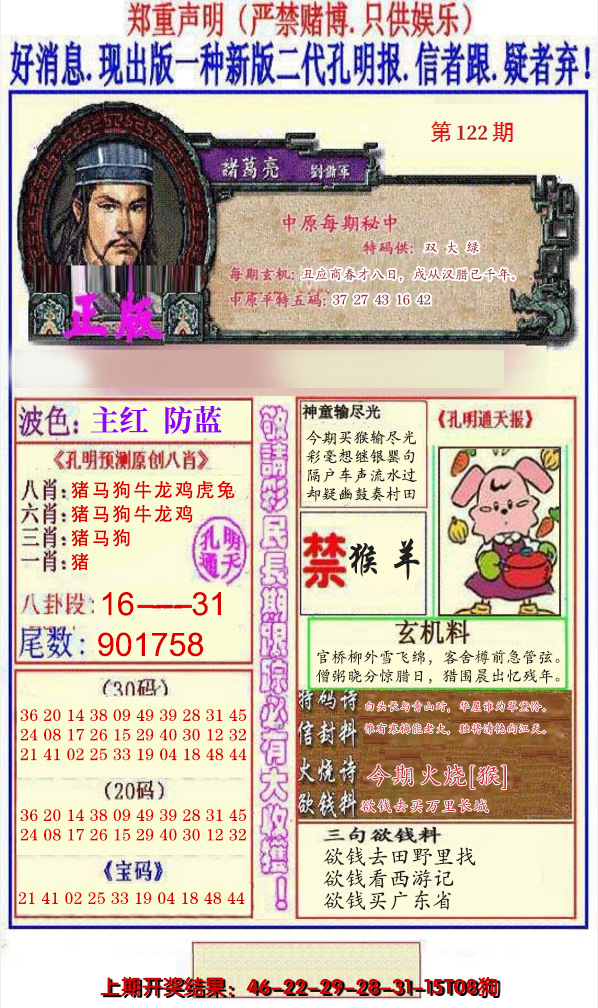 郑重声明（严禁赌博.只供娱乐）
好消息.现出版一种新版二代孔明报.信者跟.疑者弃!
第122期
諸葛亮 劉備軍
中原每期秘中
特码供: 双大绿
每期玄机: 丑应商春才八日，戌从汉腊已千年。
中原平特五码: 37 27 43 16 42
正版
波色: 主红 防蓝
《孔明预测原创八肖》
八肖: 猪马狗牛龙鸡虎兔
六肖: 猪马狗牛龙鸡
三肖: 猪马狗
一肖: 猪
孔明
通天
八卦段: 16----31
尾数: 901758
(30码)
36 20 14 38 09 49 39 28 31 45
24 08 17 26 15 29 40 30 12 32
21 41 02 25 33 19 04 18 48 44
(20码)
36 20 14 38 09 49 39 28 31 45
24 08 17 26 15 29 40 30 12 32
《宝码》
21 41 02 25 33 19 04 18 48 44
敬請彩民長期跟踪必有大收獲!
神童输尽光
今期买猴输尽光
彩毫想继银罂句
隔户车声流水过
却疑幽鼓奏村田
《孔明通天报》
禁 猴羊
玄机料
官桥柳外雪飞绵，客舍樽前急管弦。
僧粥晓分惊腊日，猎围晨出忆残年。
特码诗 白头长与青山对，华屋谁为翠黛怜。
信封料 谁有寒梅能老大，独将清艳向江天。
火烧诗 今期火烧[猴]
欲钱料 欲钱去买万里长城
三句欲钱料
欲钱去田野里找
欲钱看西游记
欲钱买广东省
上期开奖结果: 46-22-29-28-31-15T08狗